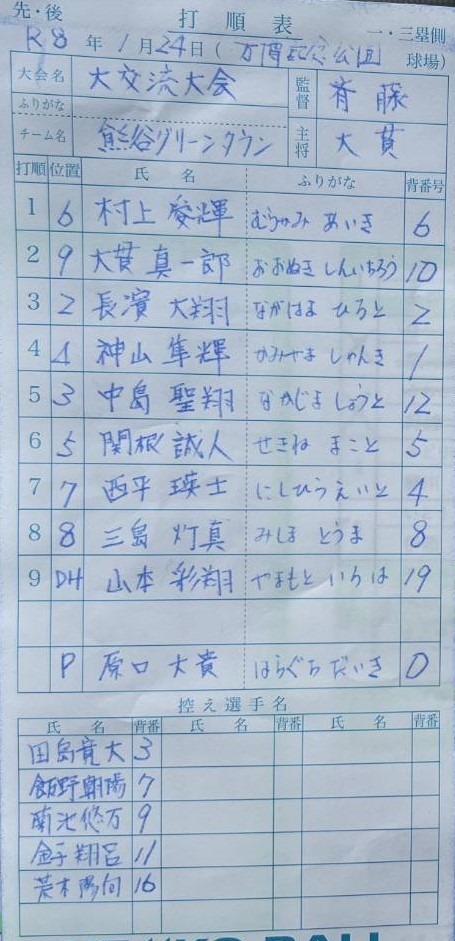 先・後 打順表 一・三塁側
R8年1月24日(万博記念公園球場)
大会名 大交流大会 監督 斉藤
ふりがな
チーム名 熊谷グリーンタウン 主将 大貫
打順 位置 氏名 ふりがな 背番号
1 6 村上 愛輝 むらかみ あいき 6
2 9 大貫 真一郎 おおぬき しんいちろう 10
3 2 長濱 大翔 ながはま ひろと 2
4 4 神山 隼輝 かみやま しゅんき 1
5 3 中島 聖翔 なかじま しょうと 12
6 5 関根 誠人 せきね まこと 5
7 7 西平 瑛士 にしひら えいと 4
8 8 三島 灯真 みしま とうま 8
9 DH 山本 彩翔 やまもと いろは 19
P 原口 大貴 はらぐち だいき 0
控え選手名
氏名 背番 氏名 背番 氏名 背番
田島竜大 3
飯野朝陽 7
菊池悠万 9
金子翔呂 11
荒木陽向 16